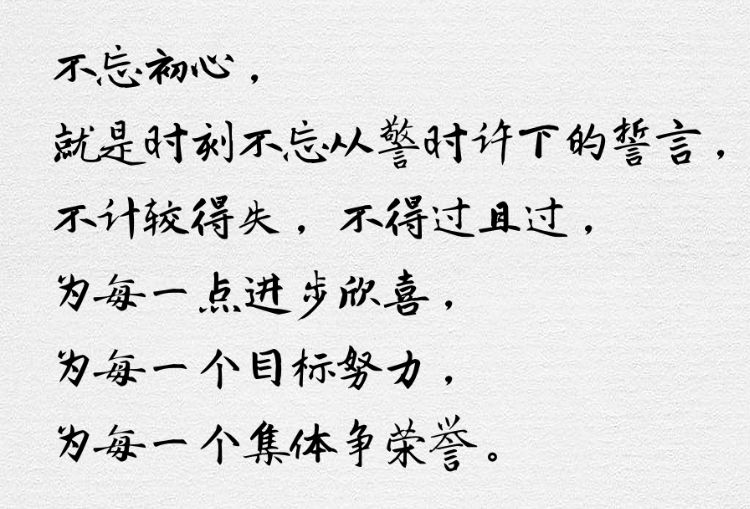 不忘初心，
就是时刻不忘从警时许下的誓言，
不计较得失，不得过且过，
为每一点进步欣喜，
为每一个目标努力，
为每一个集体争荣誉。